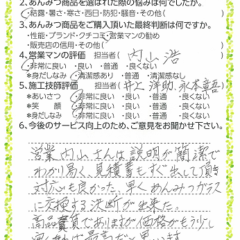 2.あんみつ商品を選ばれた際の悩みは何でしたか。
・結露・暑さ・寒さ・西日・防犯・騒音・その他(　　)
3.あんみつ商品をご購入頂いた最終判断は何ですか。
・性能・ブランド・クチコミ・営業マンの勧め
・販売店の信用・その他(　　)
4.営業マンの評価　担当者(内山 浩)
・非常に良い・良い・普通・良くない
*身だしなみ(清潔感あり・普通・清潔感なし)
5.施工技師評価　担当者(井上 洋助、)
*あいさつ(非常に良い・良い・普通・良くない)
*笑　顔(非常に良い・良い・普通・良くない)
*身だしなみ(非常に良い・良い・普通・良くない)
6.今後のサービス向上のため、ご意見をお聞かせ下さい。
営業内山さんは説明が簡潔で
わかり易く、見積書もすぐ出して頂き
対応も良かった。早くあんみつガラス
に交換する決断が出来た。
高品質でありますが価格がもう少し